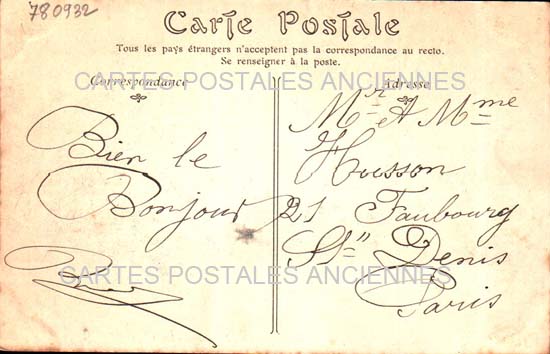 780932
Carte Postale
Tous les pays étrangers n'acceptent pas la correspondance au recto.
Se renseigner à la poste.
CARTES POSTALES ANCIENNES
Correspondance
Adresse
Bien le
Bonjour
Mr & Mme
Husson
21 Faubourg
St" Denis
Paris
CARTES POSTALES ANCIENNES